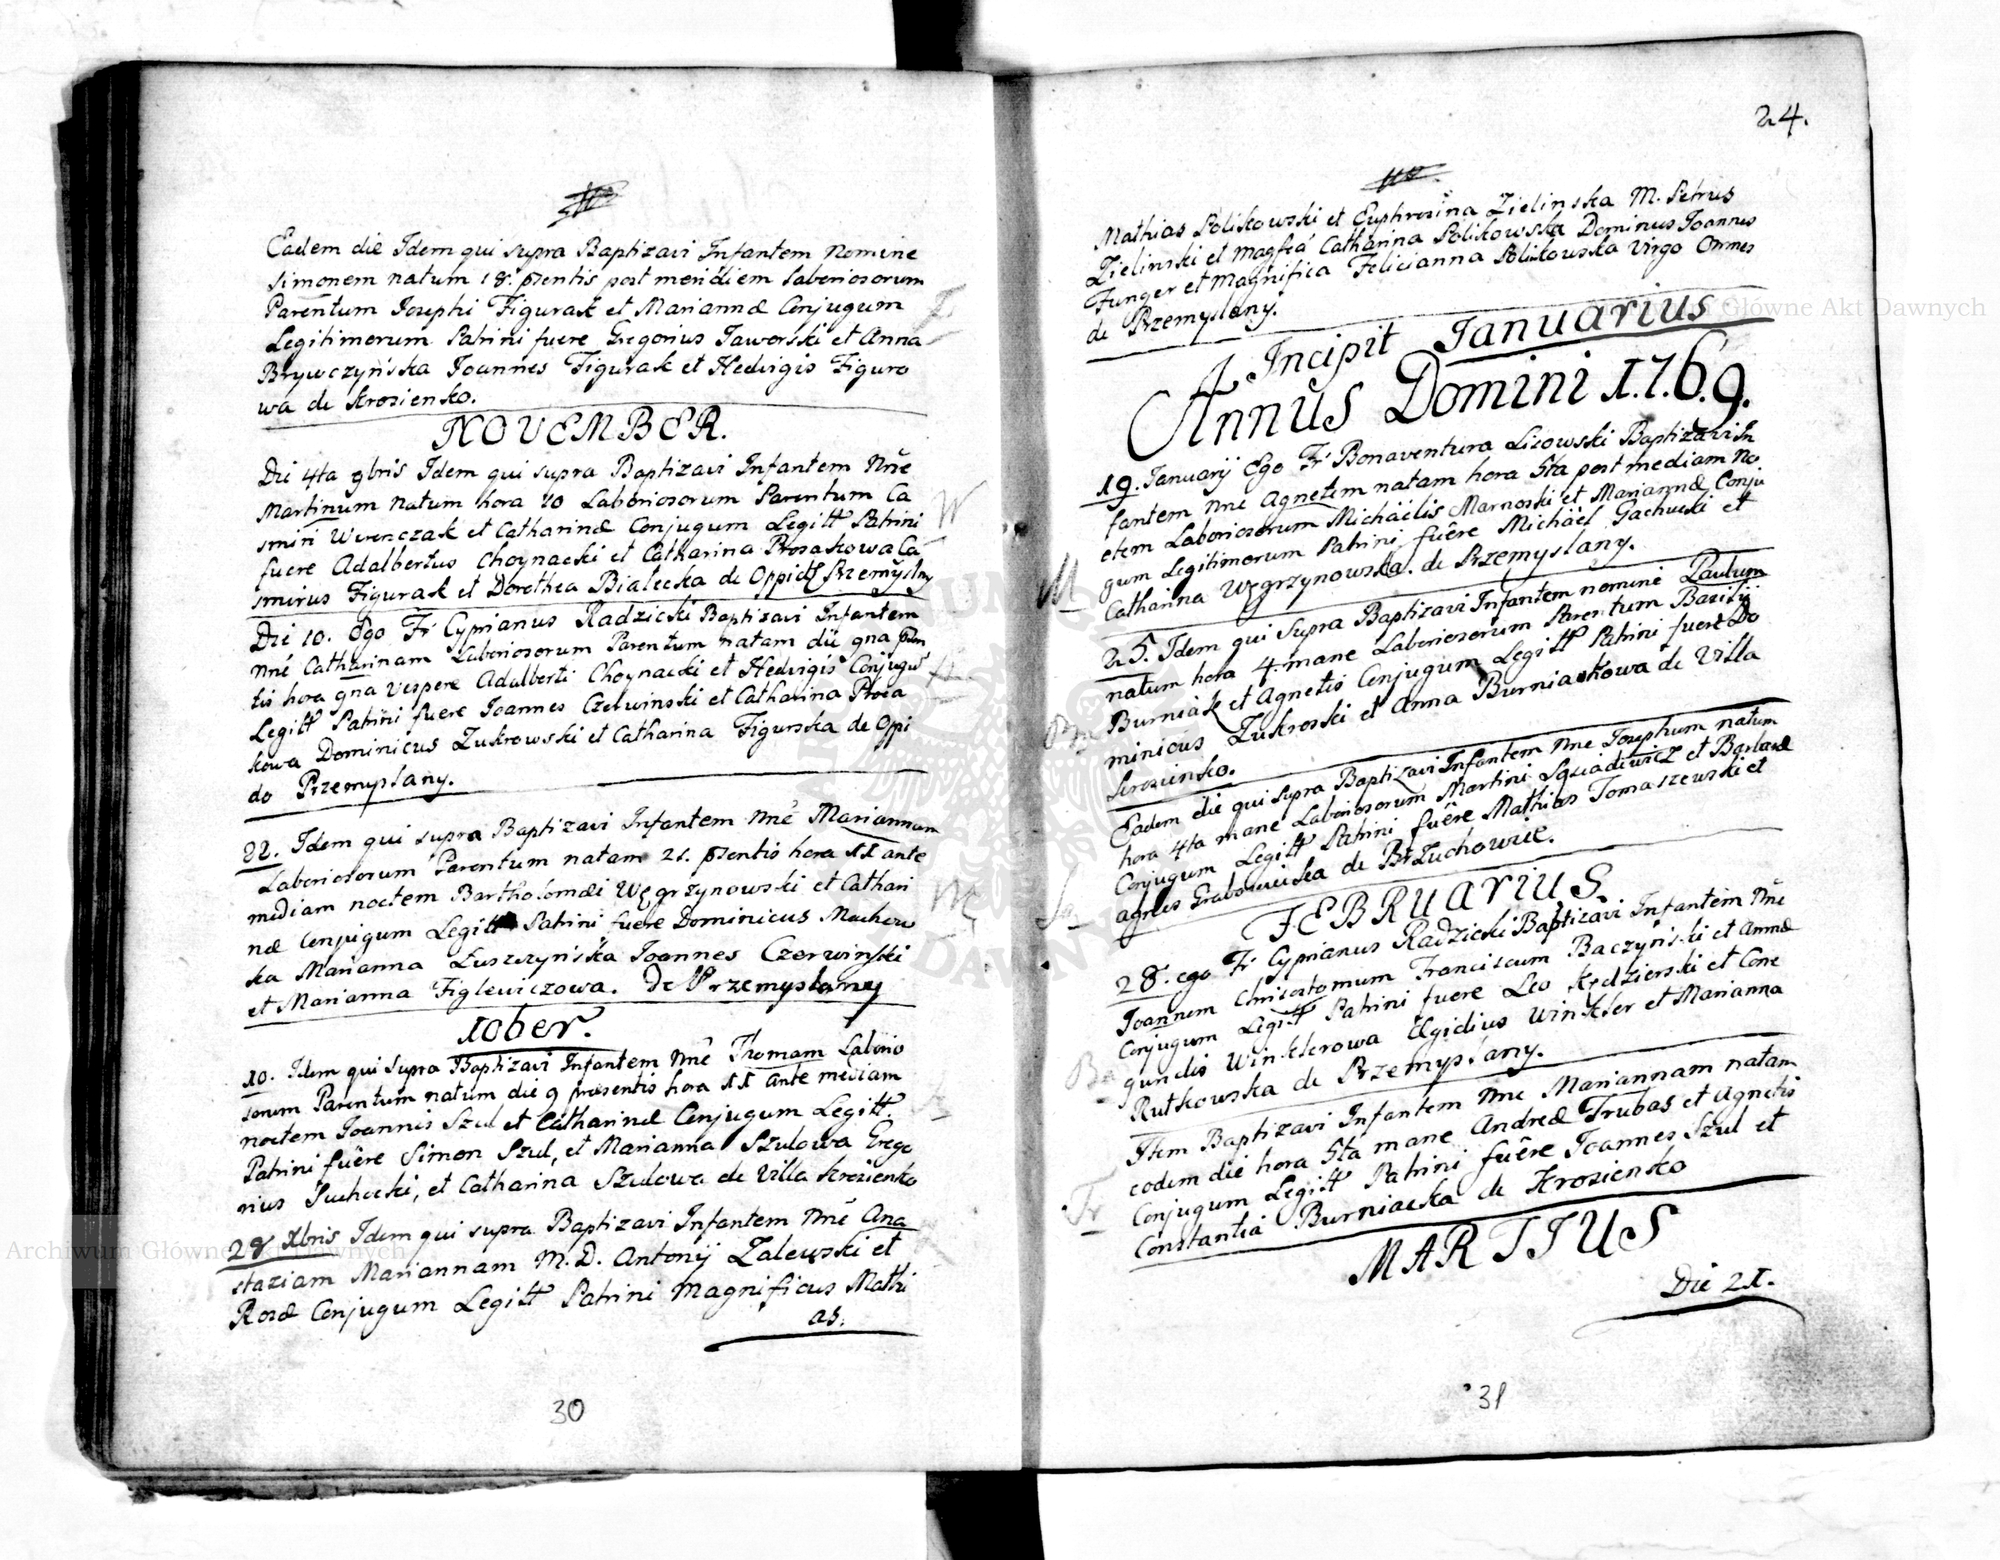 Eadem die Idem qui supra Baptizavi Infantem Nomine
Simonem natum 18. pntis post meridiem Laboriosorum
Parentum Josephi Figurak et Mariannæ Conjugum
Legitimorum Patrini fuere Gregorius Jaworski et Anna
Brywczyńska Joannes Figurak et Hedvigis Figuro
wa de Krosienko.
NOVEMBER.
Die 4ta 9bris Idem qui supra Baptizavi Infantem Nne
Martinum natum hora 10 Laboriosorum Parentum Ca
smiri Wererczak et Catharinæ Conjugum Legitt Patrini
fuere Adalbertus Choynacki et Catharina Prosakowa Ca
smirus Figurak et Dorothea Bialecka de Oppido Przemyslany
Die 10. Ego Fr Cyprianus Radzicki Baptizavi Infantem
Nne Catharinam Laboriosorum Parentum natam die 9na præn
tis hora 9na Vespere Adalberti Choynacki et Hedvigis Conjugum
Legitt Patrini fuere Joannes Czerwinski et Catharina Prosa
kowa Dominicus Zukrowski et Catharina Figurska de Oppi
do Przemyslany.
22. Idem qui supra Baptizavi Infantem Nne Mariannam
Laboriosorum Parentum natam 21. pntis hora 11 ante
mediam noctem Bartholomæi Węgrzynowski et Cathari
næ Conjugum Legitt Patrini fuere Dominicus Macherw
ska Marianna Łuszczyńska Joannes Czerwinski
et Marianna Figlewiczowa. De Przemyslany
10ber.
10. Idem qui Supra Baptizavi Infantem Nne Thomam Laborio
sorum Parentum natum die 9 præsentis hora 11 ante mediam
noctem Joannis Szul et Catharinæ Conjugum Legitt.
Patrini fuêre Simon Szul, et Marianna Szulowa Grego
rius Puchocki, et Catharina Szulowa de Villa Krosienko
28 Xbris Idem qui supra Baptizavi Infantem Nne Ana
staziam Mariannam M. D. Antonij Zalewski et
Rosæ Conjugum Legitt Patrini Magnificus Mathi
as.
30
24.
Mathias Polikowski et Euphrosina Zielinska M. Petrus
Zielinski et Magfca Catharina Polikowska Dominus Joannes
Funger et Magnifica Felicianna Polikowska Virgo Omnes
de Przemyslany.
Incipit Januarius
Annus Domini 1.7.6.9.
19. Januarij Ego Fr Bonaventura Lisowski Baptizavi In
fantem Nne Agnetem natam hora 5ta post mediam No
ctem Laboriosorum Michaëlis Marnoski et Mariannæ Conju
gum Legitimorum Patrini fuêre Michaël Gachucki et
Catharina Węgrzynowska. de Przemyslany.
25. Idem qui Supra Baptizavi Infantem nomine Paulum
natum hora 4. mane Laboriosorum Parentum Basilij
Burniak et Agnetis Conjugum Legitt Patrini fuere Do
minicus Zukroski et Anna Burniakowa de Villa
Krosienko.
Eadem die qui supra Baptizavi Infantem Nne Josephum natum
hora 4ta mane Laboriosorum Martini Sąsiadewicz et Barbaræ
Conjugum Legitt Patrini fuêre Mathias Tomaszewski et
Agnes Grabowiecka de Brzuchowice.
FEBRUARIUS
28. ego Fr Cyprianus Radzicki Baptizavi Infantem Nne
Joannem Chrisostomum Franciscum Baczyński et Annæ
Conjugum Legitt Patrini fuere Leo Kędzierski et Cone
gundis Winklerowa Ægidius Winkler et Marianna
Rutkowska de Przemyslany.
Item Baptizavi Infantem Nne Mariannam natam
eodem die hora 5ta mane Andreæ Trubas et Agnetis
Conjugum Legitt Patrini fuêre Joannes Szul et
Constantia Burniacka de Krosienko
MARTIUS
Die 21.
31
Archiwum Główne Akt Dawnych
Archiwum Główne Akt Dawnych